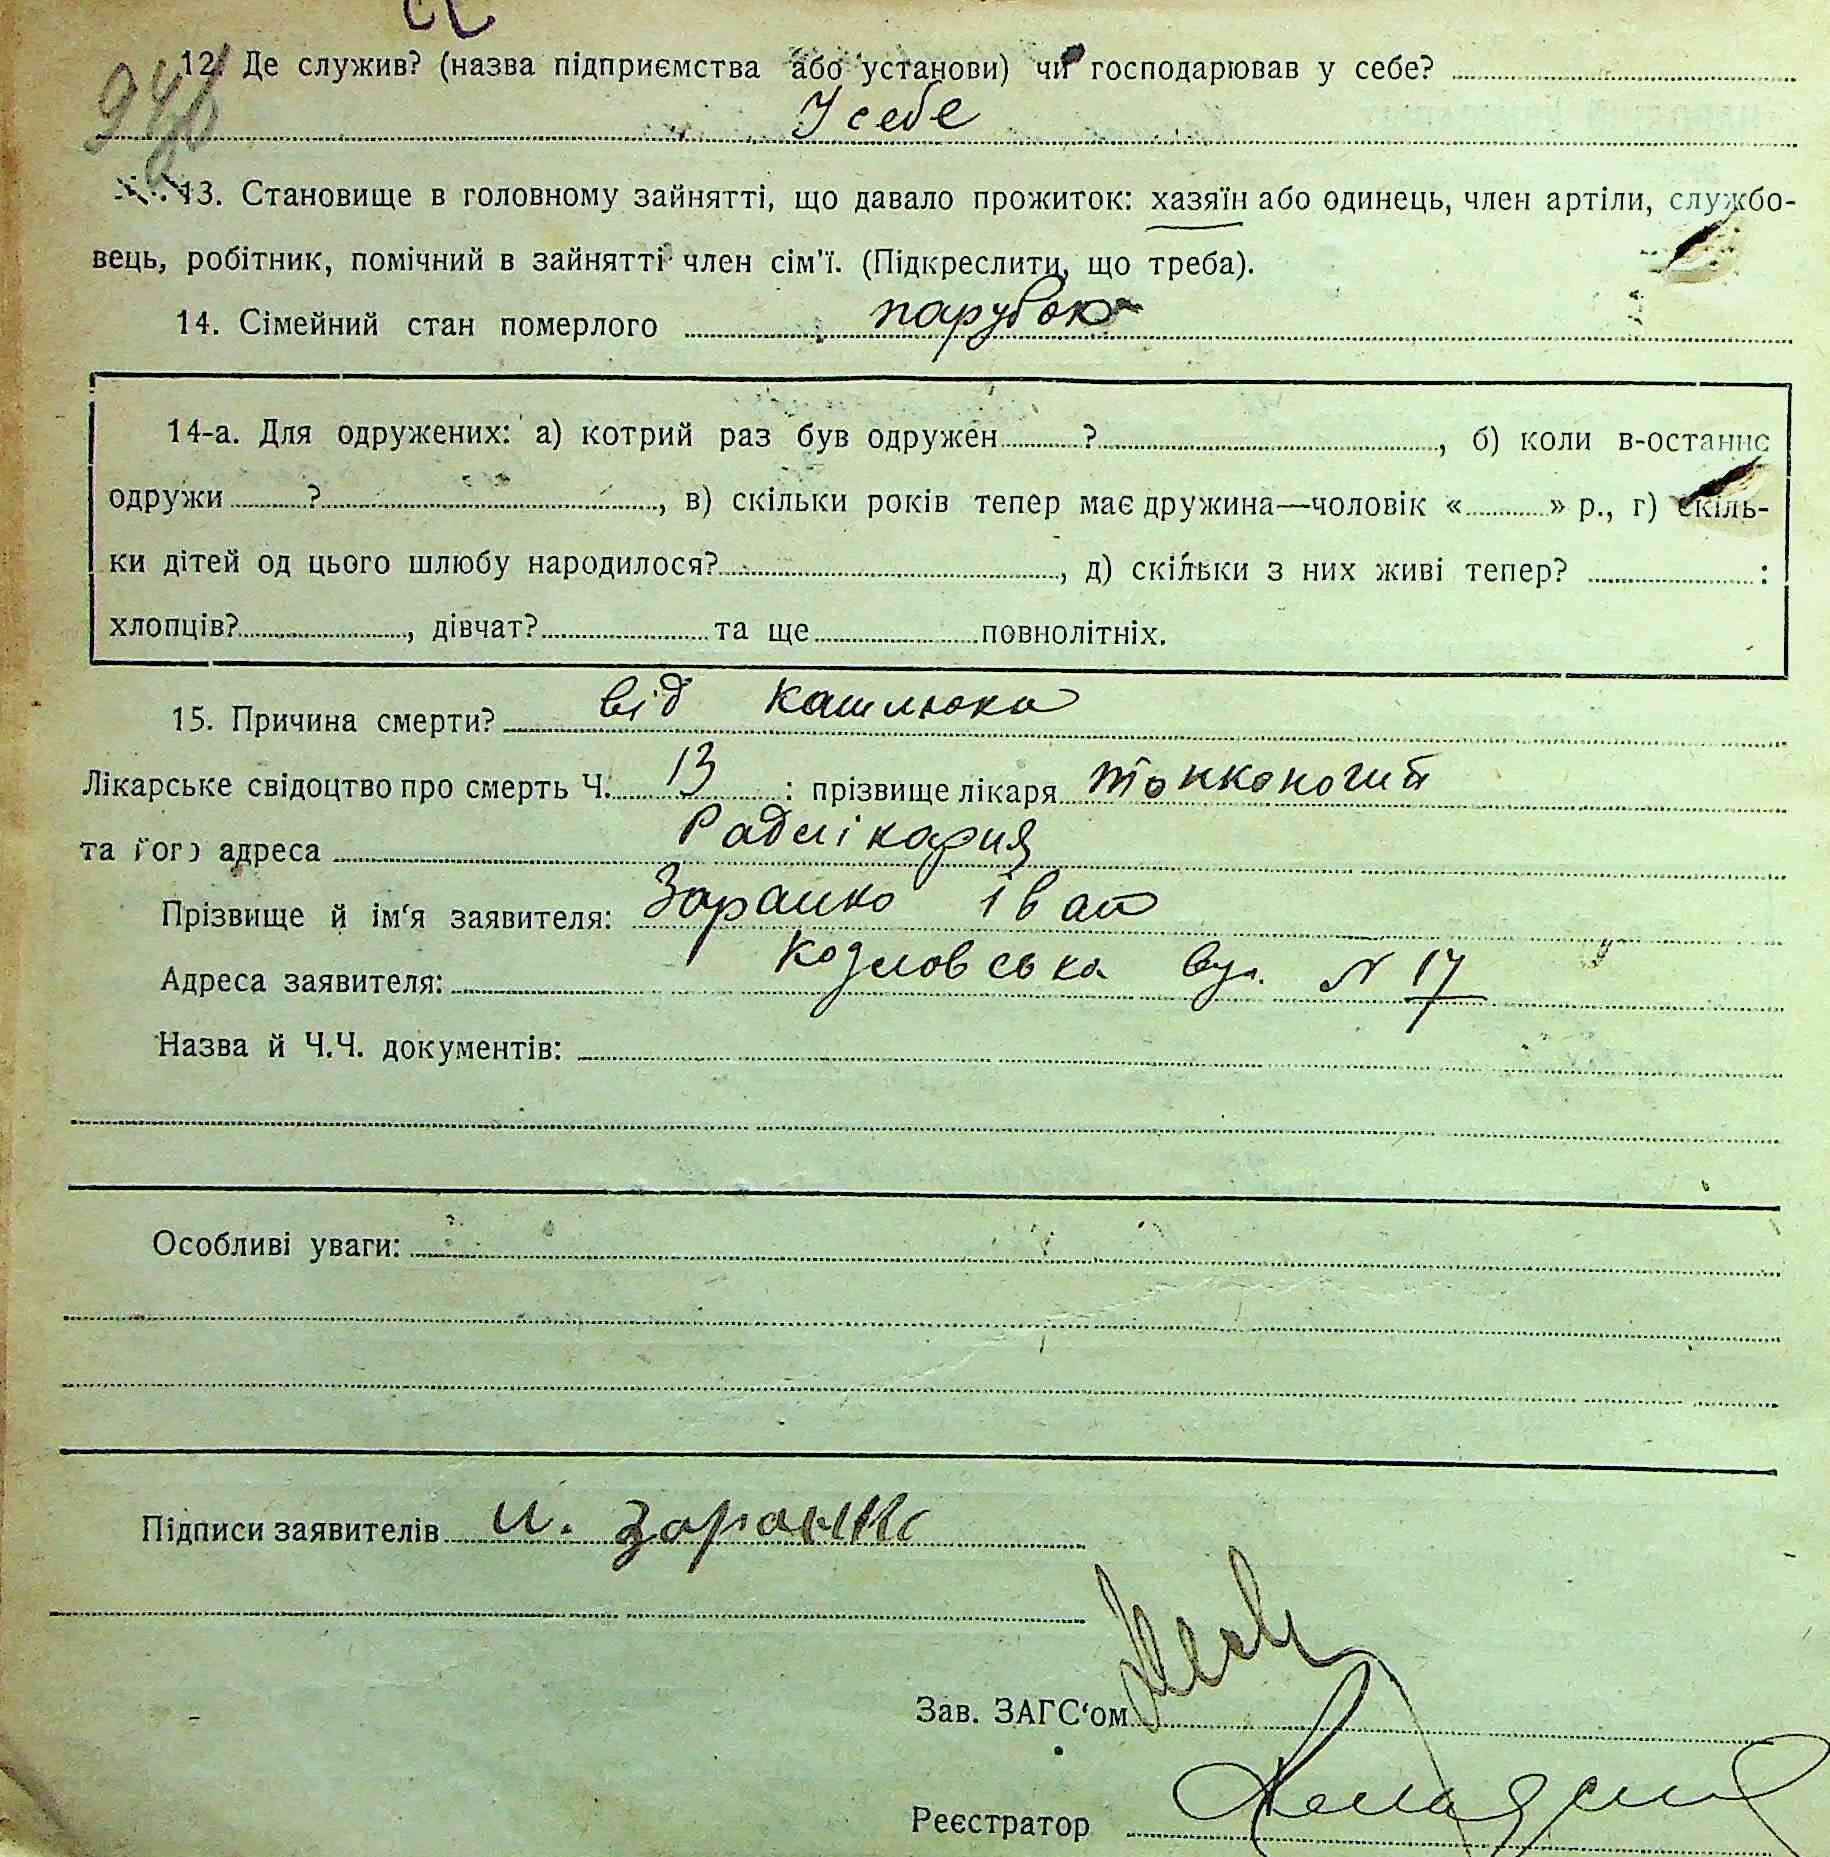 12. Де служив? (назва підприємства або установи) чи господарював у себе?
У себе
13. Становище в головному зайнятті, що давало прожиток: хазяїн або одинець, член артіли, службо-
вець, робітник, помічний в зайнятті член сім'ї. (Підкреслити, що треба).
14. Сімейний стан померлого парубок
14-а. Для одружених: а) котрий раз був одружен ? , б) коли в-останнє
одружи ? , в) скільки років тепер має дружина—чоловік « » р., г) скіль-
ки дітей од цього шлюбу народилося? , д) скільки з них живі тепер? :
хлопців? , дівчат? та ще повнолітніх.
15. Причина смерти? від кашлюка
Лікарське свідоцтво про смерть Ч. 13 : прізвище лікаря Тонконогий
та його адреса Радлікарня
Прізвище й ім'я заявителя: Заранко Іван
Адреса заявителя: Козловська вул. N 17
Назва й Ч.Ч. документів:
Особливі уваги:
Підписи заявителів И. Заранко
Зав. ЗАГС'ом
Реєстратор